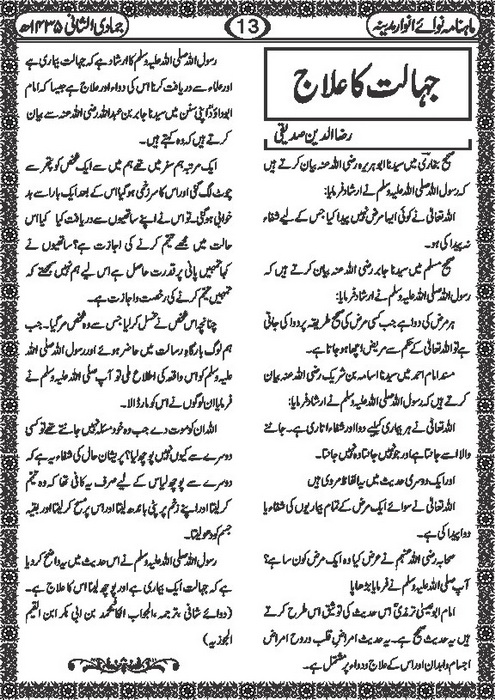 ماہنامہ نوائے انوار مدینہ
13
جمادی الثانی ۱۴۳۵ھ
جہالت کا علاج
رضاالدین صدیقی
صحیح بخاری میں سیدنا ابو ہریرہ رضی اللہ عنہ بیان کرتے ہیں
کہ رسول اللہ صلی اللہ علیہ وسلم نے ارشاد فرمایا:
اللہ تعالیٰ نے کوئی ایسا مرض نہیں پیدا کیا جس کے لیے شفاء
نہ پیدا کی ہو۔
صحیح مسلم میں سیدنا جابر رضی اللہ عنہ بیان کرتے ہیں کہ
رسول اللہ صلی اللہ علیہ وسلم نے ارشاد فرمایا:
ہر مرض کی دوا ہے جب کسی مرض کی صحیح طریقہ پر دوا کی جاتی
ہے تو اللہ تعالیٰ کے حکم سے مریض اچھا ہو جاتا ہے۔
مسند امام احمد میں سیدنا اسامہ بن شریک رضی اللہ عنہ بیان
کرتے ہیں کہ رسول اللہ صلی اللہ علیہ وسلم نے ارشاد فرمایا:
اللہ تعالیٰ نے ہر بیماری کیلیے دوا اور شفاء اتاری ہے۔ جاننے
والا اسے جانتا ہے اور جو نہیں جانتا وہ نہیں جانتا۔
اور ایک دوسری حدیث میں یہ الفاظ مروی ہیں
اللہ تعالیٰ نے سوائے ایک مرض کے تمام بیماریوں کی شفاء یا
دوا پیدا کی ہے۔
صحابہ رضی اللہ عنہم نے عرض کیا وہ ایک مرض کون سا ہے؟
آپ صلی اللہ علیہ وسلم نے فرمایا بڑھاپا
امام ابو عیسیٰ ترمذیؒ اس حدیث کی توثیق اس طرح کرتے
ہیں یہ حدیث صحیح ہے۔ یہ حدیث امراض قلب و روح امراض
اجسام و ابدان اور اس کے علاج و دواء پر مشتمل ہے۔
رسول اللہ صلی اللہ علیہ وسلم کا ارشاد ہے کہ جہالت بیماری ہے
اور علماء سے دریافت کرنا اس کی دوا اور علاج ہے جیسا کہ امام
ابو داؤد اپنی سنن میں سیدنا جابر بن عبداللہ رضی اللہ عنہ سے بیان
کرتے ہیں کہ وہ کہتے ہیں۔
ایک مرتبہ ہم سفر میں تھے ہم میں سے ایک شخص کو پتھر سے
چوٹ لگ گئی اور اس کا سر زخمی ہو گیا اس کے بعد ایک بار اسے بد
خوابی ہو گئی تو اس نے اپنے ساتھیوں سے دریافت کیا کیا اس
حالت میں مجھے تیمم کرنے کی اجازت ہے؟ ساتھیوں نے
کہا تمہیں پانی پر قدرت حاصل ہے اس لیے ہم نہیں سمجھتے کہ
تمہیں تیمم کرنے کی رخصت و اجازت ہے۔
چنانچہ اس شخص نے غسل کر لیا جس سے وہ شخص مر گیا۔ جب
ہم لوگ بارگاہ رسالت میں حاضر ہوئے اور رسول صلی اللہ
علیہ وسلم کو اس واقعہ کی اطلاع ملی تو آپ صلی اللہ علیہ وسلم نے
فرمایا ان لوگوں نے اس کو مار ڈالا۔
اللہ ان کو موت دے جب وہ خود مسئلہ نہیں جانتے تھے تو کسی
دوسرے سے کیوں نہیں پوچھ لیا؟ پریشان حال کی شفاء یہ ہے کہ
دوسرے سے پوچھ لے اس کے لیے صرف یہ کافی تھا کہ وہ تیمم
کر لیتا اور اپنے زخم پر پٹی باندھ لیتا اور اس پر مسح کر لیتا اور بقیہ
جسم کو دھو لیتا۔
رسول اللہ صلی اللہ علیہ وسلم نے اس حدیث میں یہ واضح کر دیا
ہے کہ جہالت ایک بیماری ہے اور پوچھ لینا اس کا علاج ہے۔
(دوائے شافی ترجمہ الجواب الکافی محمد بن ابی بکر ابن القیم
الجوزیہ)